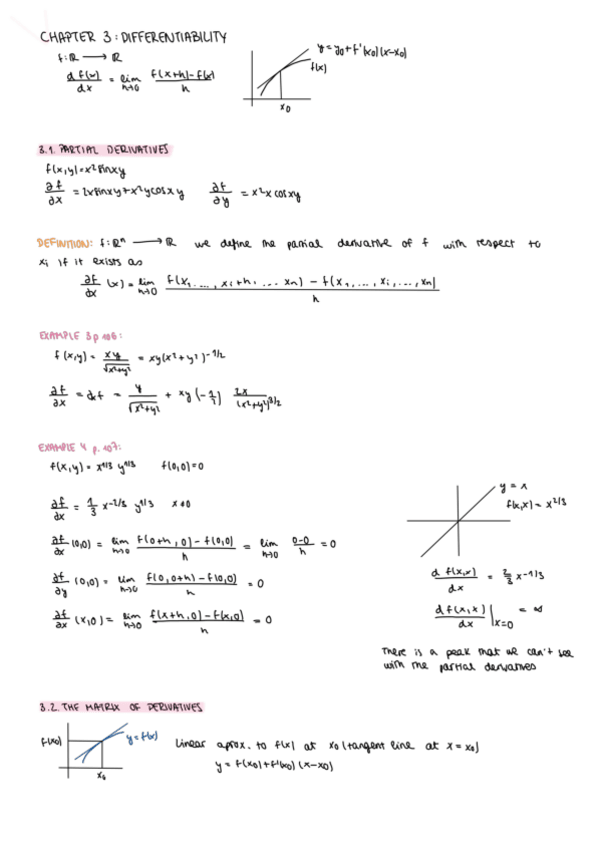 CHAPTER 3: DIFFERENTIABILITY
f: ℝ ⟶ ℝ
d f(x)/dx = lim h→0 (f(x+h)-f(x))/h
y = y0 + f'(x0)(x-x0)
f(x)
x0
3.1. PARTIAL DERIVATIVES
f(x,y)=x²sinxy
∂f/∂x = 2xsinxy + x²ycosxy ∂f/∂y = x²x cosxy
DEFINITION: f: ℝⁿ ⟶ ℝ we define the partial derivative of f with respect to
xi if it exists as
∂f/∂x (x) = lim h→0 (f(x1, ..., xi+h, ... xn) - f(x1, ..., xi, ..., xn))/h
EXAMPLE 3 p 106:
f(x,y) = xy/√(x²+y²) = xy(x²+y²)^-1/2
∂f/∂x = dxf = y/√(x²+y²) + xy (-1/2) 2x/(x²+y²)^3/2
EXAMPLE 4 p. 107:
f(x,y) = x^1/3 y^1/3 f(0,0)=0
∂f/∂x = 1/3 x^-2/3 y^1/3 x≠0
∂f/∂x (0,0) = lim h→0 (f(0+h,0)-f(0,0))/h = lim h→0 (0-0)/h = 0
∂f/∂y (0,0) = lim h→0 (f(0,0+h)-f(0,0))/h = 0
∂f/∂x (x,0) = lim h→0 (f(x+h,0)-f(x,0))/h = 0
y = x
f(x,x) = x^2/3
d f(x,x)/dx = 2/3 x^-1/3
d f(x,x)/dx |x=0 = ∞
There is a peak that we can't see
with the partial derivatives
3.2. THE MATRIX OF DERIVATIVES
f(x0)
y = f(x)
x0
Linear aprox. to f(x) at x0 (tangent line at x = x0)
y = f(x0)+f'(x0)(x-x0)